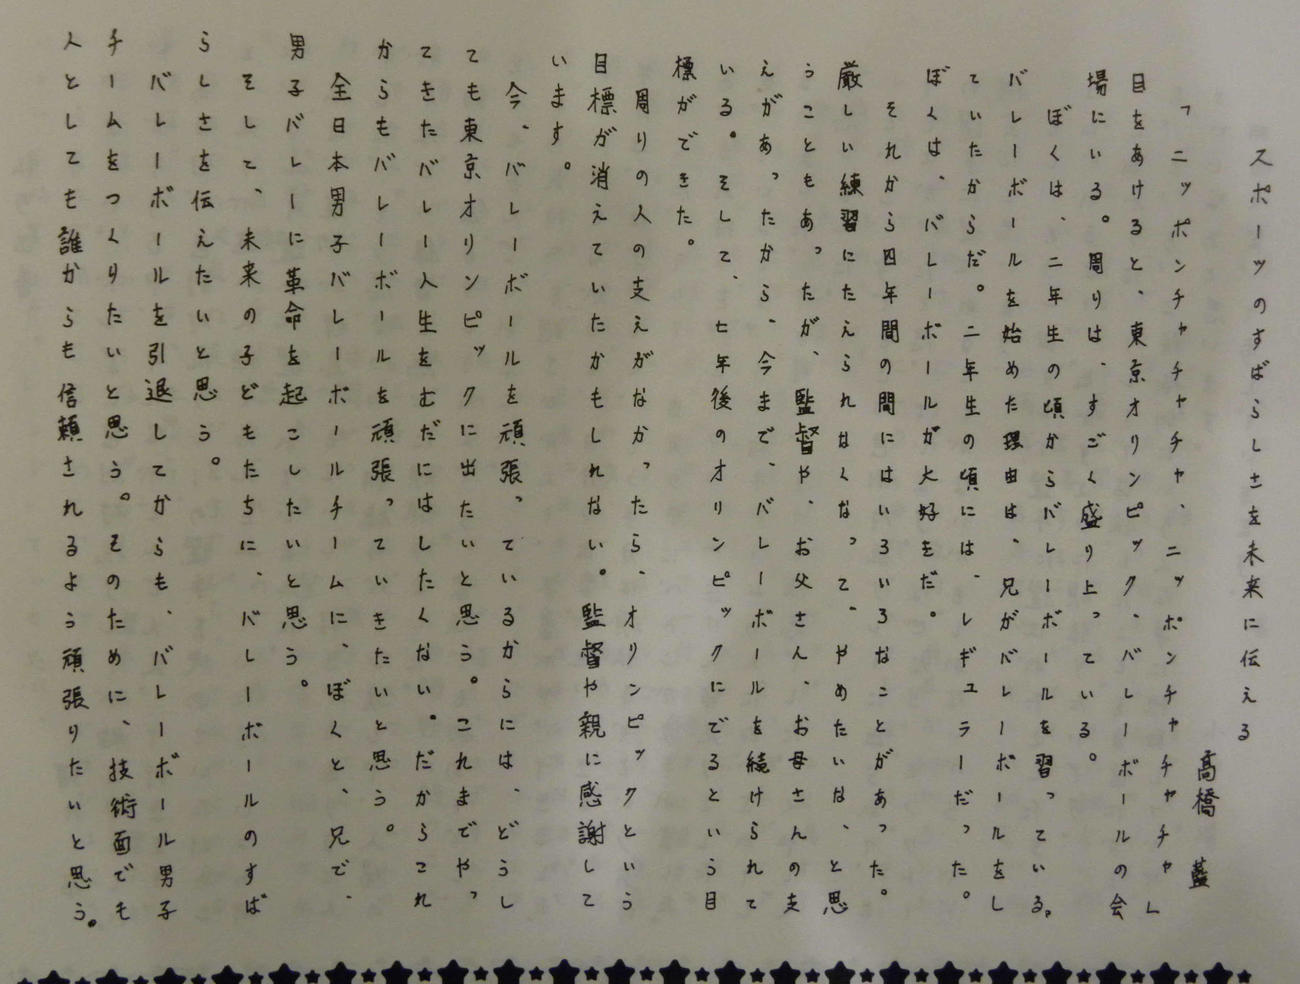 スポーツのすばらしさを未来に伝える
高橋 藍
「ニッポンチャチャチャ、ニッポンチャチャチャ」
目をあけると、東京オリンピック、バレーボールの会
場にいる。周りは、すごく盛り上っている。
ぼくは、二年生の頃からバレーボールを習っている。
バレーボールを始めた理由は、兄がバレーボールをし
ていたからだ。二年生の頃には、レギュラーだった。
ぼくは、バレーボールが大好きだ。
それから四年間の間にはいろいろなことがあった。
厳しい練習にたえられなくなって、やめたいな、と思
うこともあったが、監督や、お父さん、お母さんの支
えがあったから、今まで、バレーボールを続けられて
いる。そして、七年後のオリンピックにでるという目
標ができた。
周りの人の支えがなかったら、オリンピックという
目標が消えていたかもしれない。監督や親に感謝して
います。
今、バレーボールを頑張っているからには、どうし
ても東京オリンピックに出たいと思う。これまでやっ
てきたバレー人生をむだにはしたくない。だからこれ
からもバレーボールを頑張っていきたいと思う。
全日本男子バレーボールチームに、ぼくと、兄で、
男子バレーに革命を起こしたいと思う。
そして、未来の子どもたちに、バレーボールのすば
らしさを伝えたいと思う。
バレーボールを引退してからも、バレーボール男子
チームをつくりたいと思う。そのために、技術面でも
人としても誰からも信頼されるよう頑張りたいと思う。